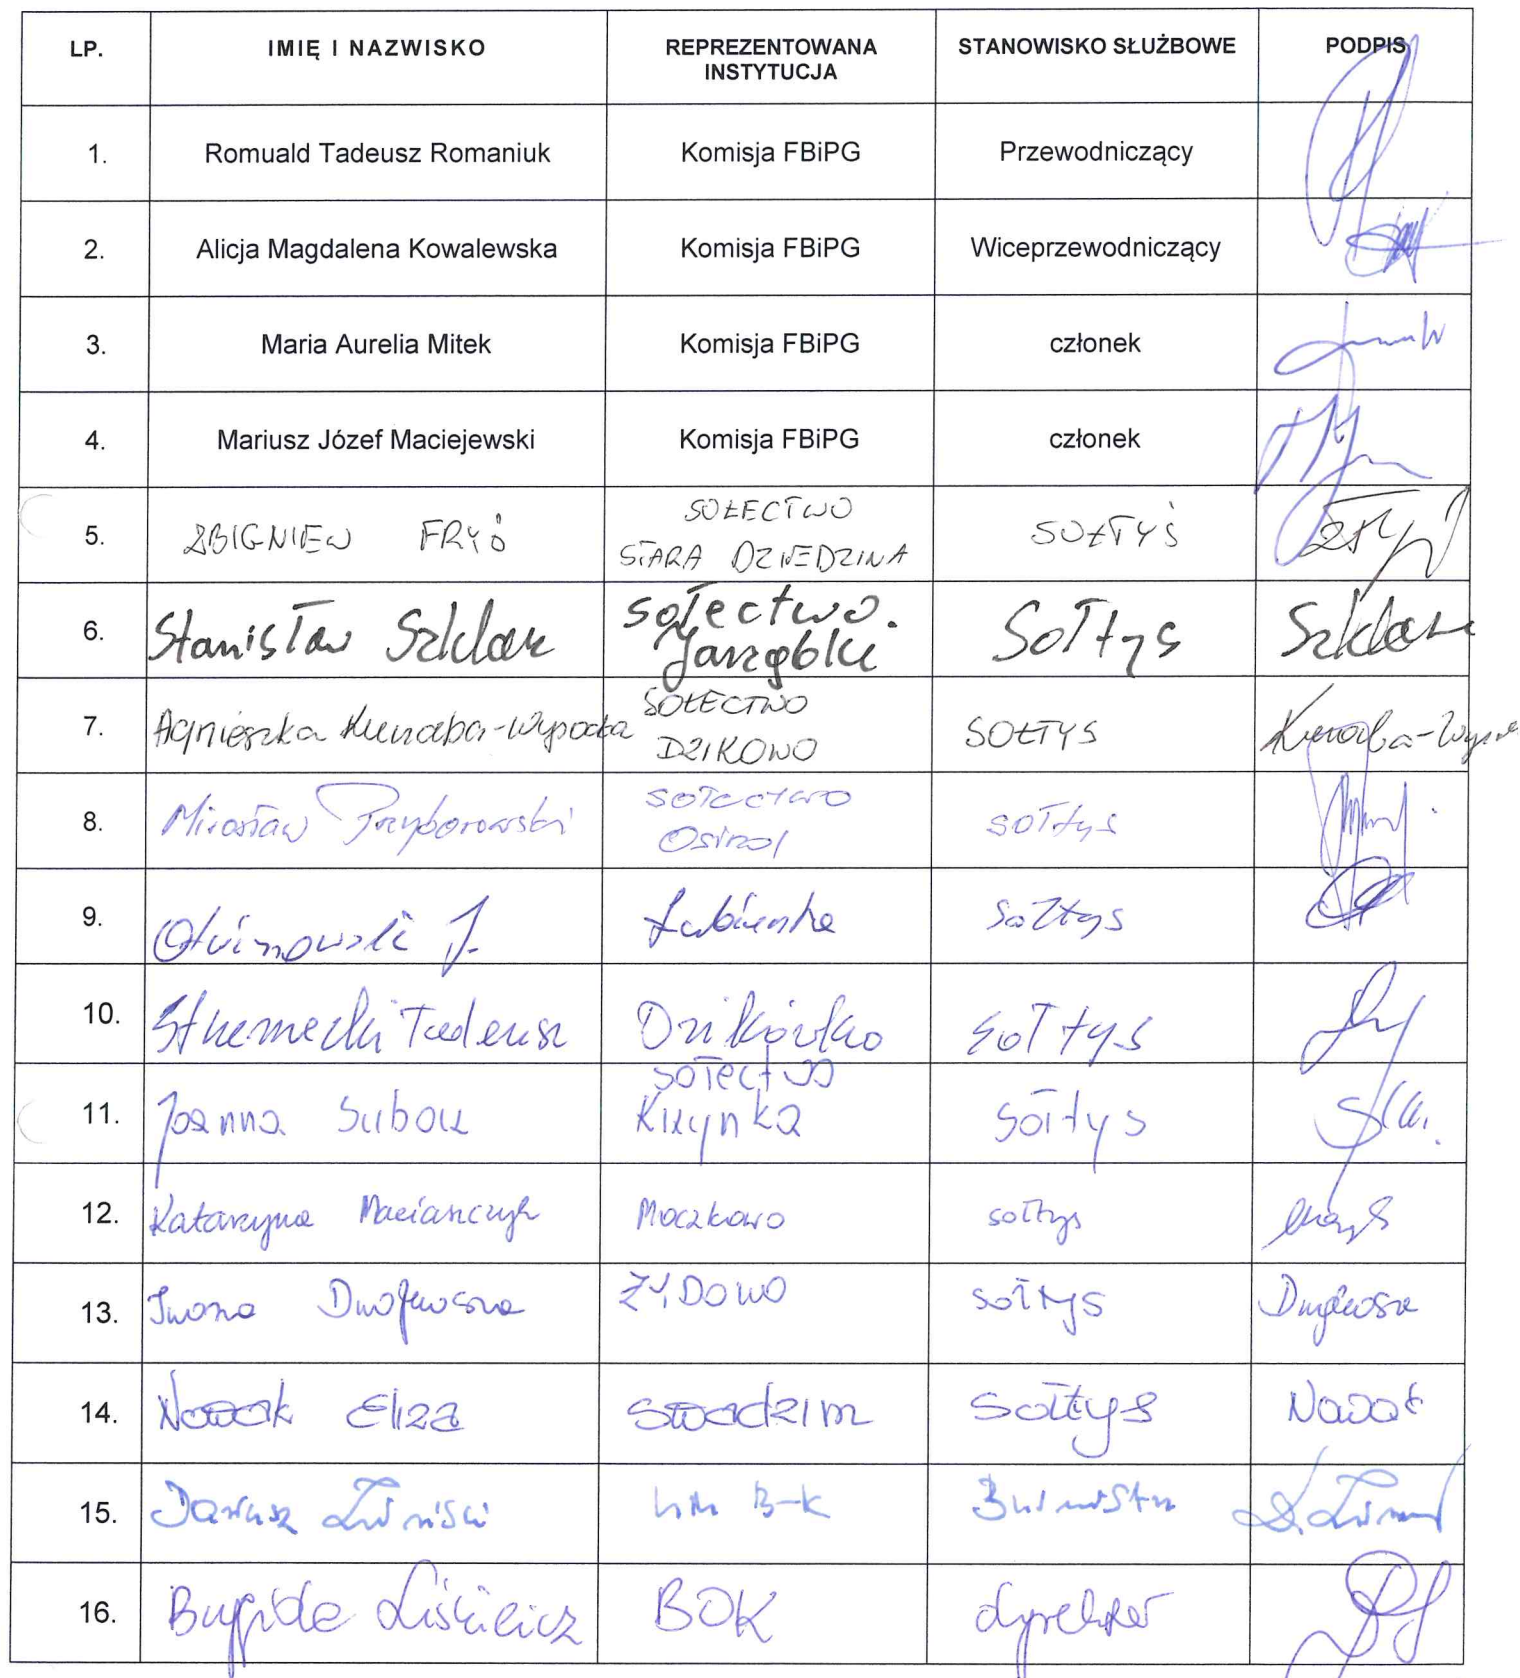 LP. IMIĘ I NAZWISKO REPREZENTOWANA INSTYTUCJA STANOWISKO SŁUŻBOWE PODPIS
1. Romuald Tadeusz Romaniuk Komisja FBiPG Przewodniczący
2. Alicja Magdalena Kowalewska Komisja FBiPG Wiceprzewodniczący
3. Maria Aurelia Mitek Komisja FBiPG członek
4. Mariusz Józef Maciejewski Komisja FBiPG członek
5. ZBIGNIEW FRYŚ SOŁECTWO STARA DZIEDZINA SOŁTYŚ
6. Stanisław Szklarz sołectwo. Jarząbki Sołtys
7. Agnieszka SOŁECTWO DZIKOWO SOŁTYS
8. Mirosław Przyborowski sołectwo Osina sołtys
9. J. sołtys
10. Tadeusz Dzikówko Sołtys
11. Joanna sołectwo Krzynka sołtys
12. Katarzyna Macianczyk Moczkowo sołtys
13. Iwona ŻYDOWO sołtys
14. Nowak Eliza Swadzim sołtys Nowak
15. Dariusz B-k Burmistrz
16. Brygida BOK dyrektor